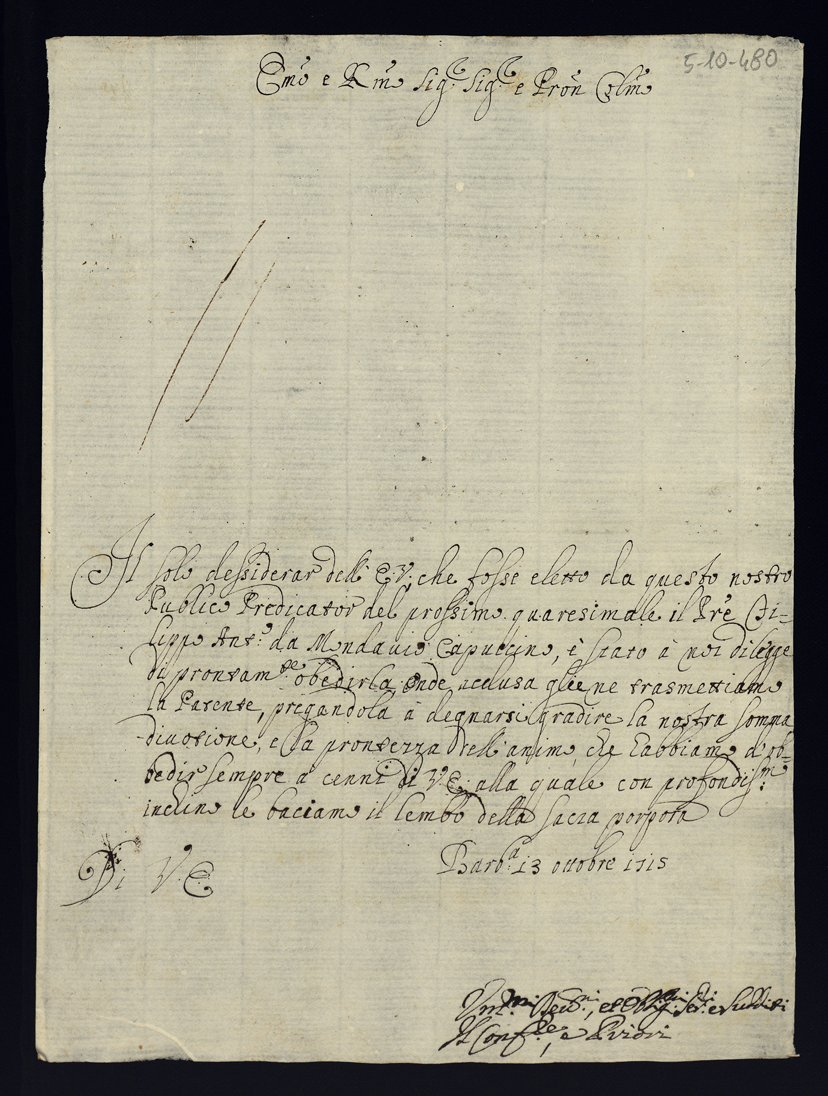 5-10-480
Emo e Rmo Sigr. Sigr. e Pron Colmo
Il solo dessiderar dell' E.V. che fosse eletto da questo nostro
Publico Predicator del prossimo quaresimale il Pre Fi-
lippo Anto. da Mondavio Capuccino, è stato à noi di legge
di prontamte. obedirla, onde acclusa gliene trasmettiamo
la Patente, pregandola à degnarsi gradire la nostra somma
divotione, e la prontezza dell'animo, che habbiamo d'ob-
bedir sempre a cenni di V.E. alla quale con profondism.
inclino le baciamo il lembo della sacra porpora
Di V.E.
Barba. 13 ottobre 1715
Ummi. Devmi., et Obligmi. Seri. e Sudditi
Il Confre., e Priori